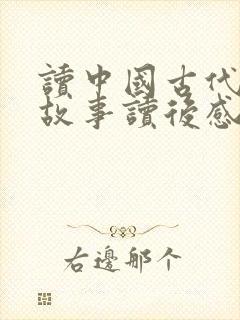 讀中國古代
故事讀後感
右邊那个